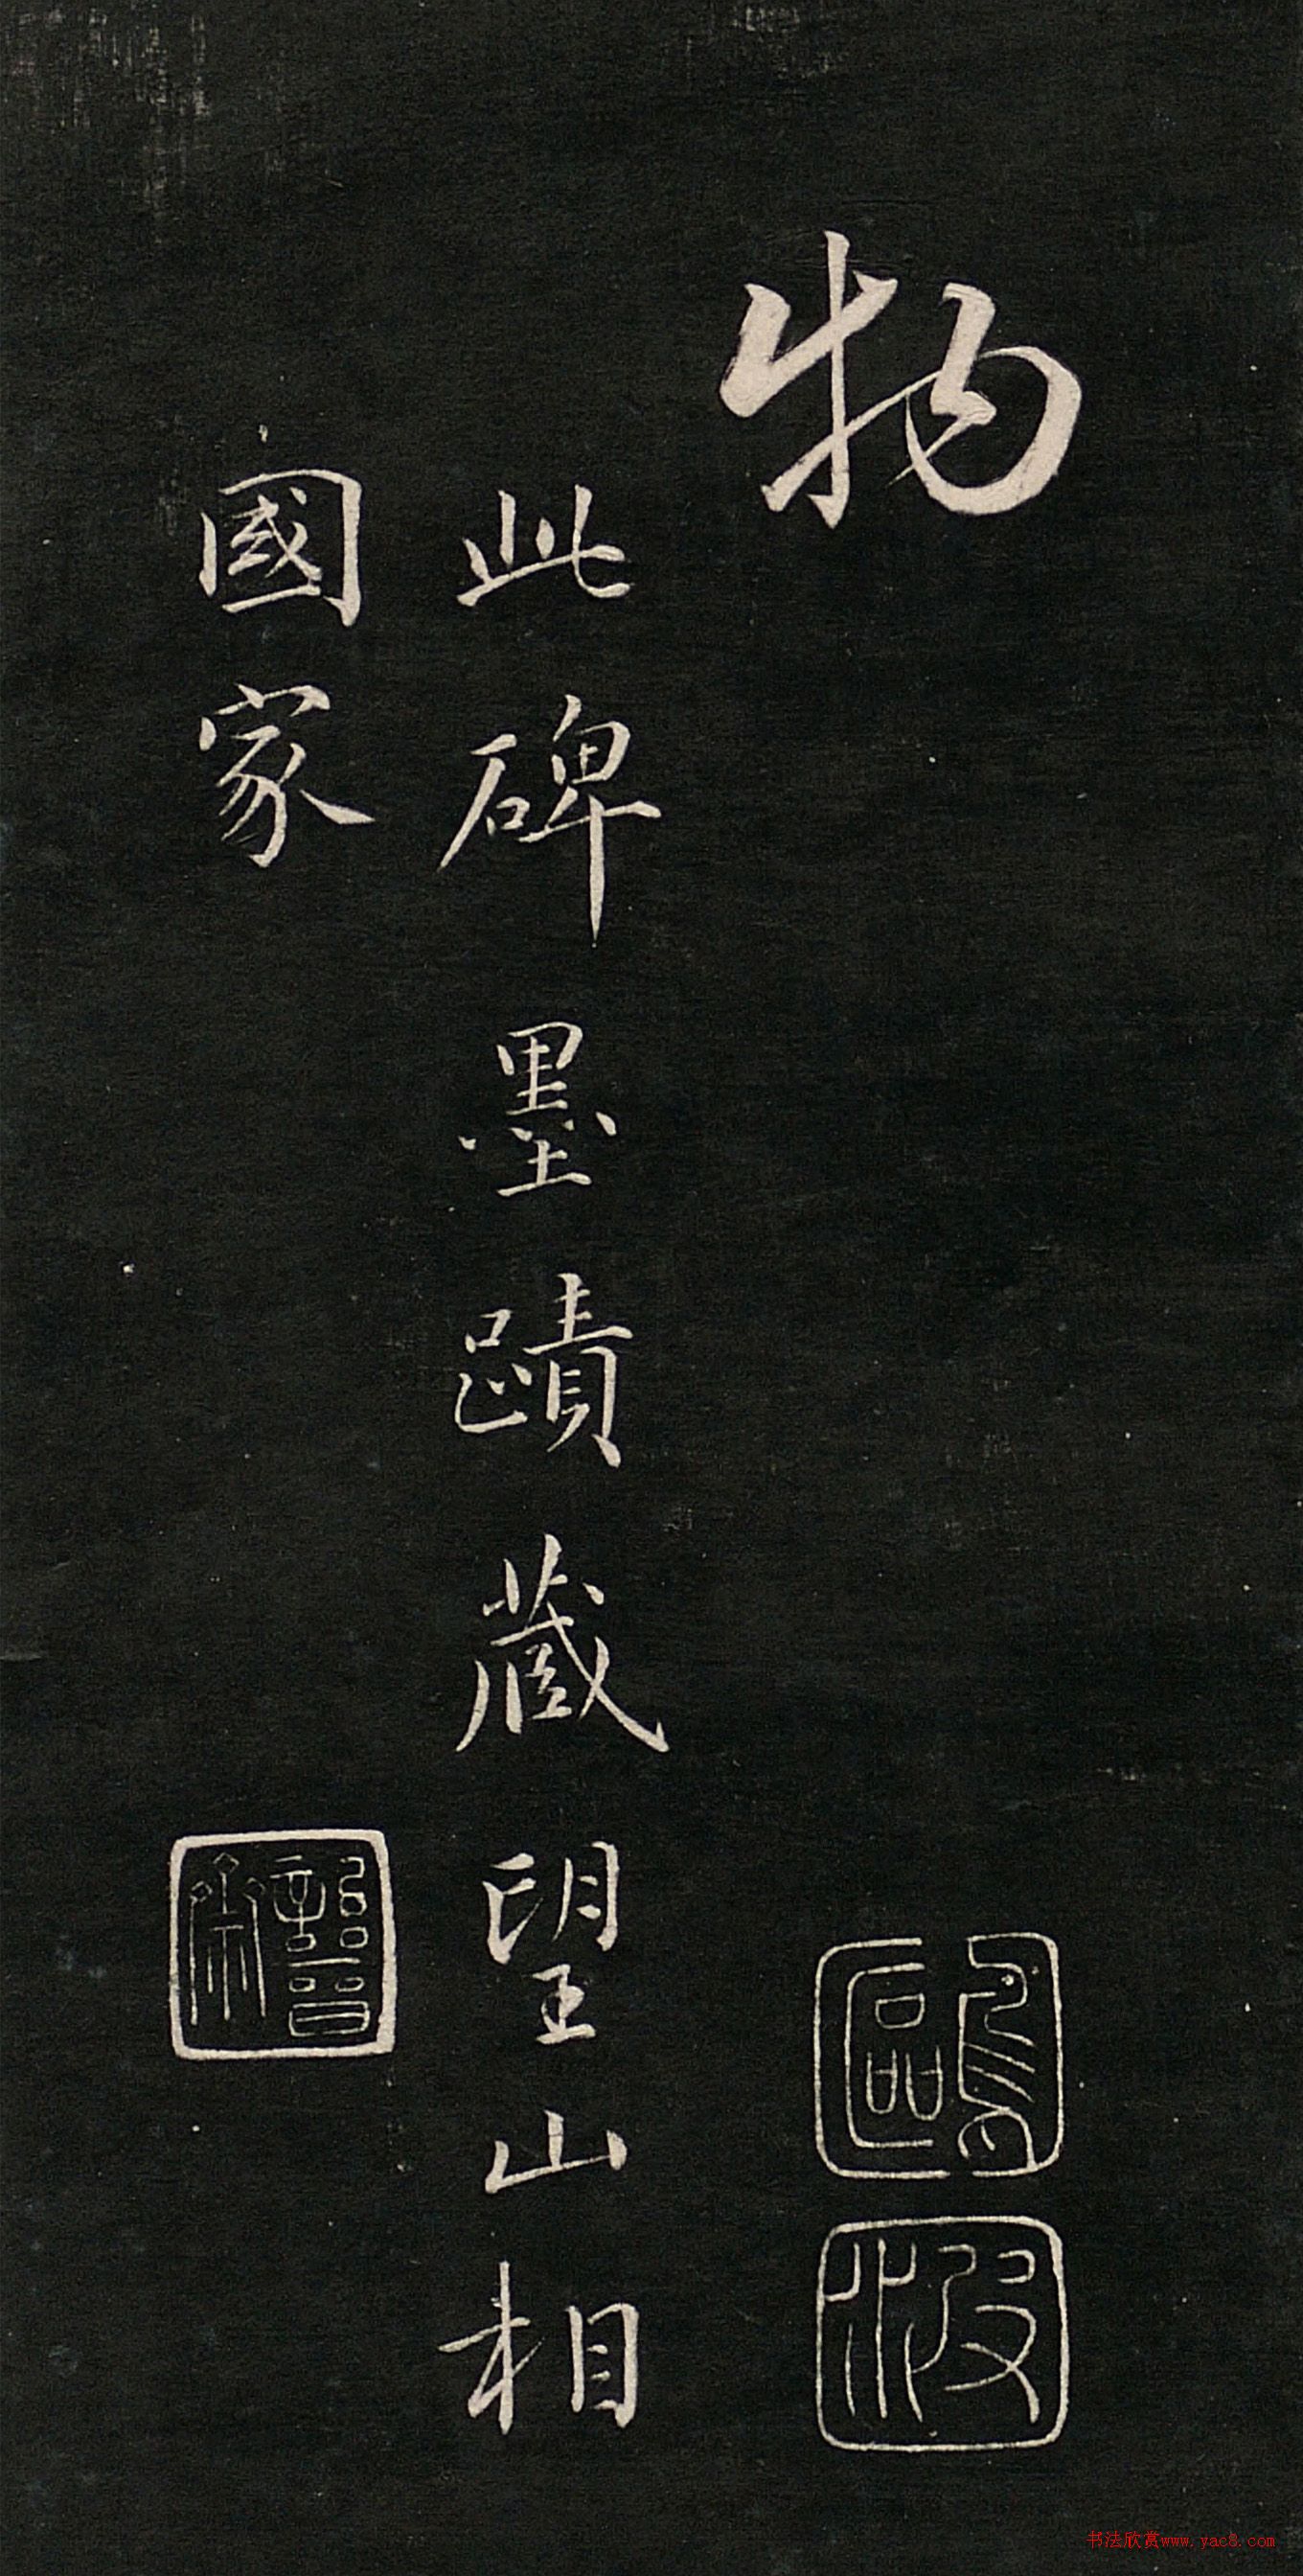 物
此碑墨蹟藏望山相
國家
鷗波
书法欣赏www.yac8.com